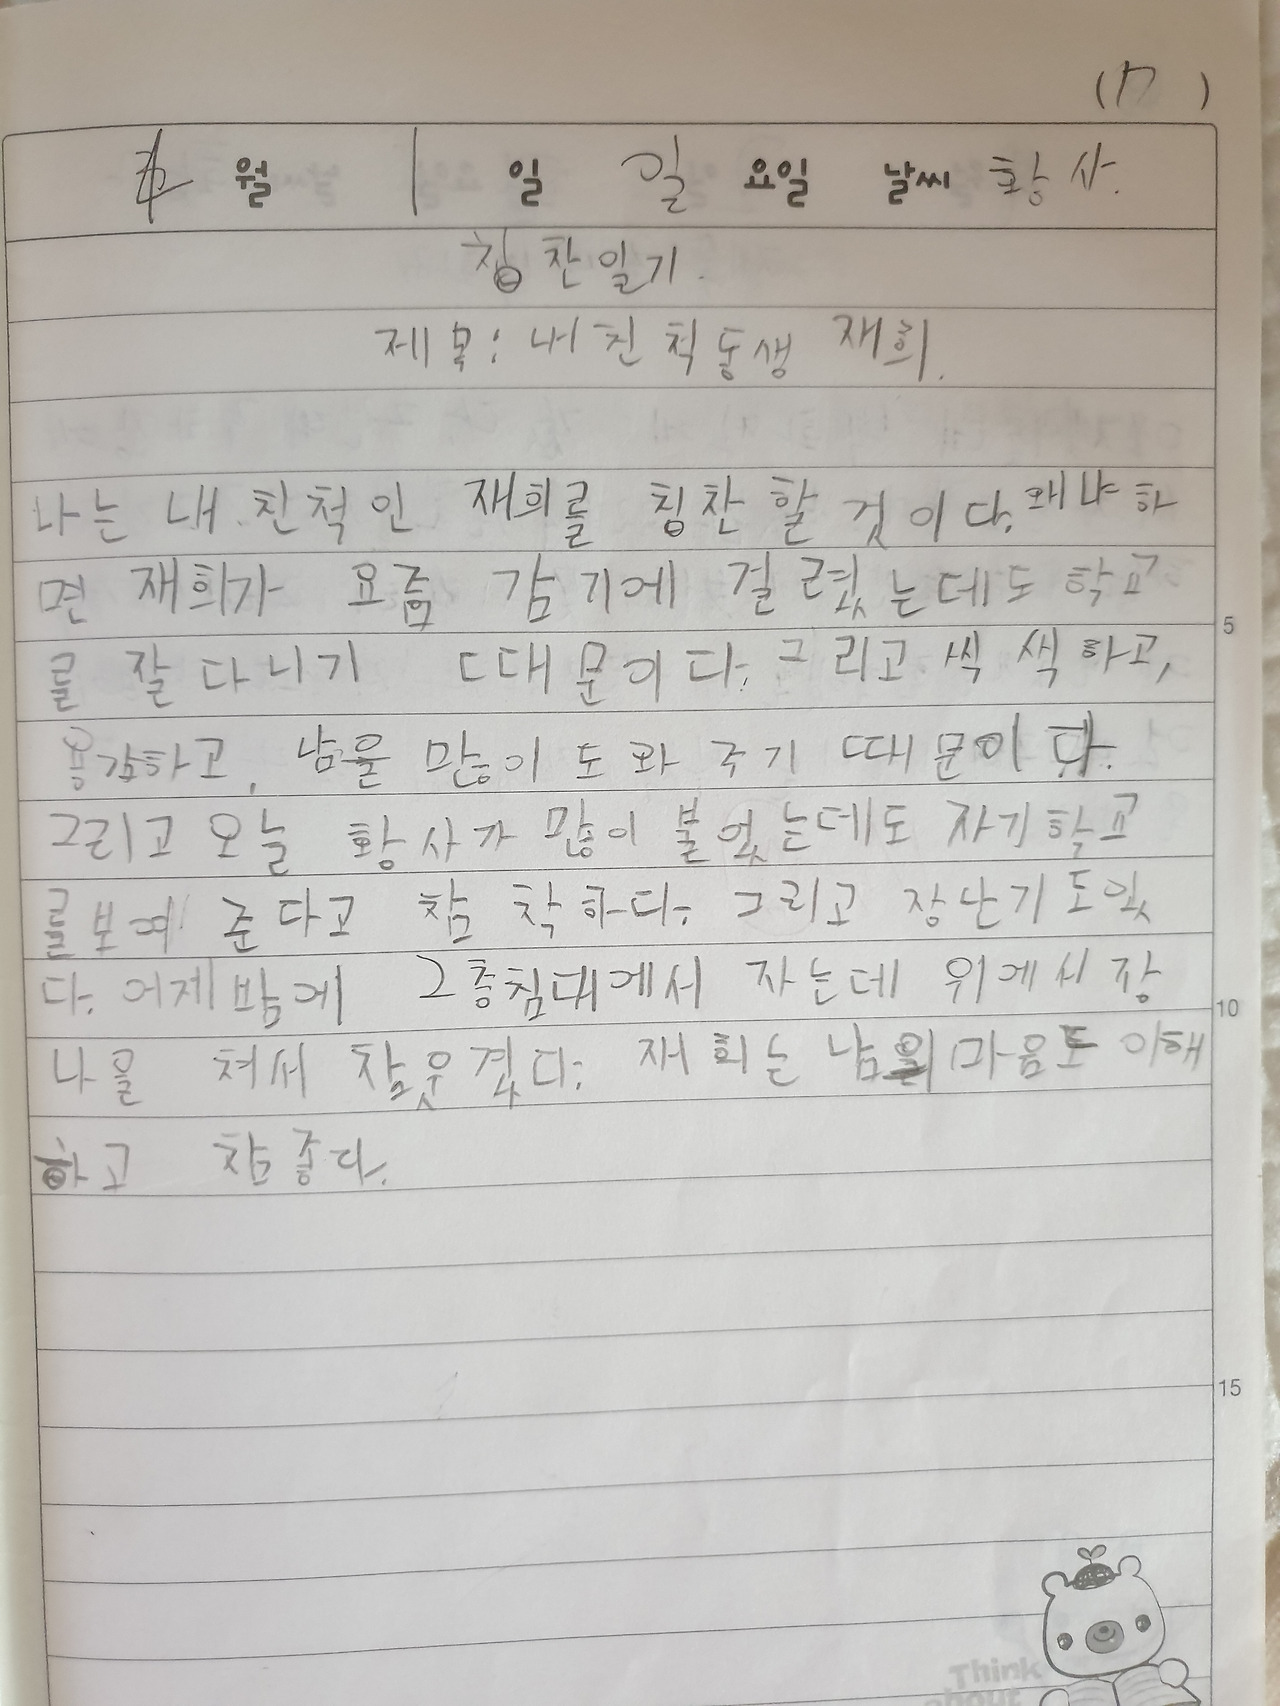 (17)
4월 1일 일요일 날씨 황사.
칭찬일기.
제목: 내친척동생 재희.
나는 내 친척인 재희를 칭찬할 것이다. 왜냐하
면 재희가 요즘 감기에 걸렸는데도 학교
를 잘 다니기 때문이다. 그리고 씩 씩하고,
용감하고, 남을 많이 도와 주기 때문이다.
그리고 오늘 황사가 많이 불었는데도 자기학교
를보여 준다고 참 착하다. 그리고 장난기도있
다. 어제밤에 2층침대에서 자는데 위에서 장
나을 쳐서 참웃겼다. 재희는 남의 마음도 이해
하고 참좋다.
5
10
15
Think
about